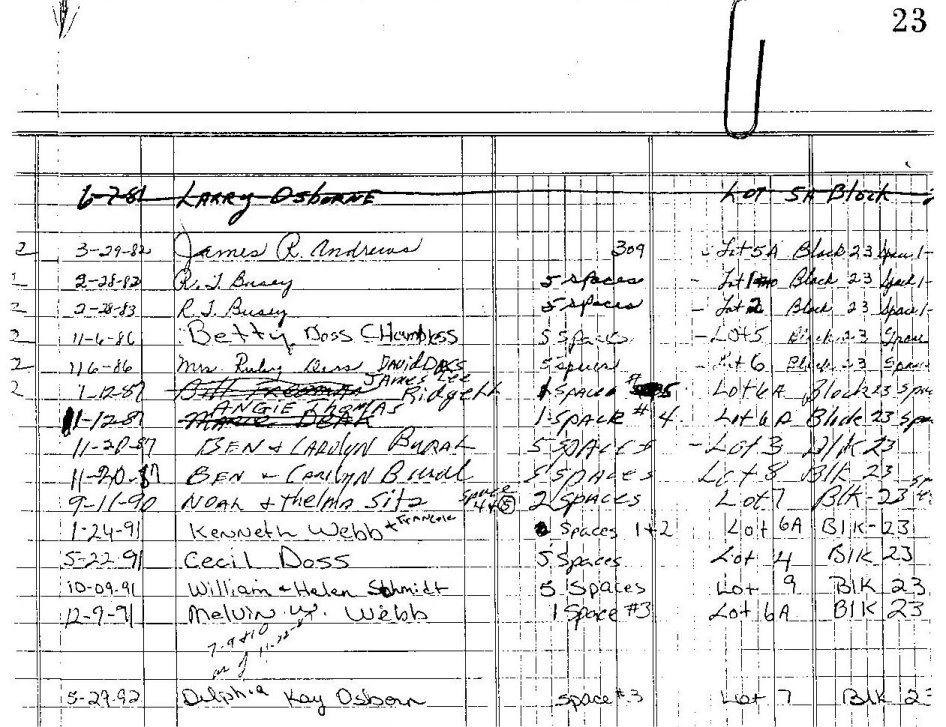 23
6-7-81 LARRY OSBORNE Lot 5A Block
2 3-29-82 James R. Andrews 309 - Lot 5A Block 23 Space 1-
2-28-83 R. J. Busey 5 spaces - Lot 1 Block 23 Space 1-
2 2-28-83 R. J. Busey 5 spaces - Lot 2 Block 23 Space 1-
2 11-6-86 Betty Doss 5 Spaces - Lot 5 Block 23 Space
2 11-6-86 Mrs. Ruby Doss DAVID DOSS 5 spaces - Lot 6 Block 23 Space
JAMES Lee
2 1-12-87 Bill Freeman Ridgell 1 Space # 5 Lot 6A Block 23 Spa
ANGIE THOMAS
11-12-87 1-Space # 4 Lot 6A Block 23 Spa
11-20-87 BEN & CAROLYN 5 SPACES - Lot 3 Blk 23
11-20-87 BEN & CAROLYN 5 SPACES Lot 8 Blk 23
9-11-90 NOAH & Thelma Sitz Space 4+5 2 Spaces Lot 7 Blk-23
1-24-91 Kenneth Webb + Spaces 1+2 Lot 6A Blk-23
5-22-91 Cecil Doss 5 Spaces Lot 4 Blk 23
10-09-91 William & Helen Schmidt 5 Spaces Lot 9 Blk 23
12-9-91 Melvin W. Webb 1 Space #3 Lot 6A Blk 23
7-9 &10
as of
5-29-92 Delphia Kay Osborn Space #3 Lot 7 Blk 23